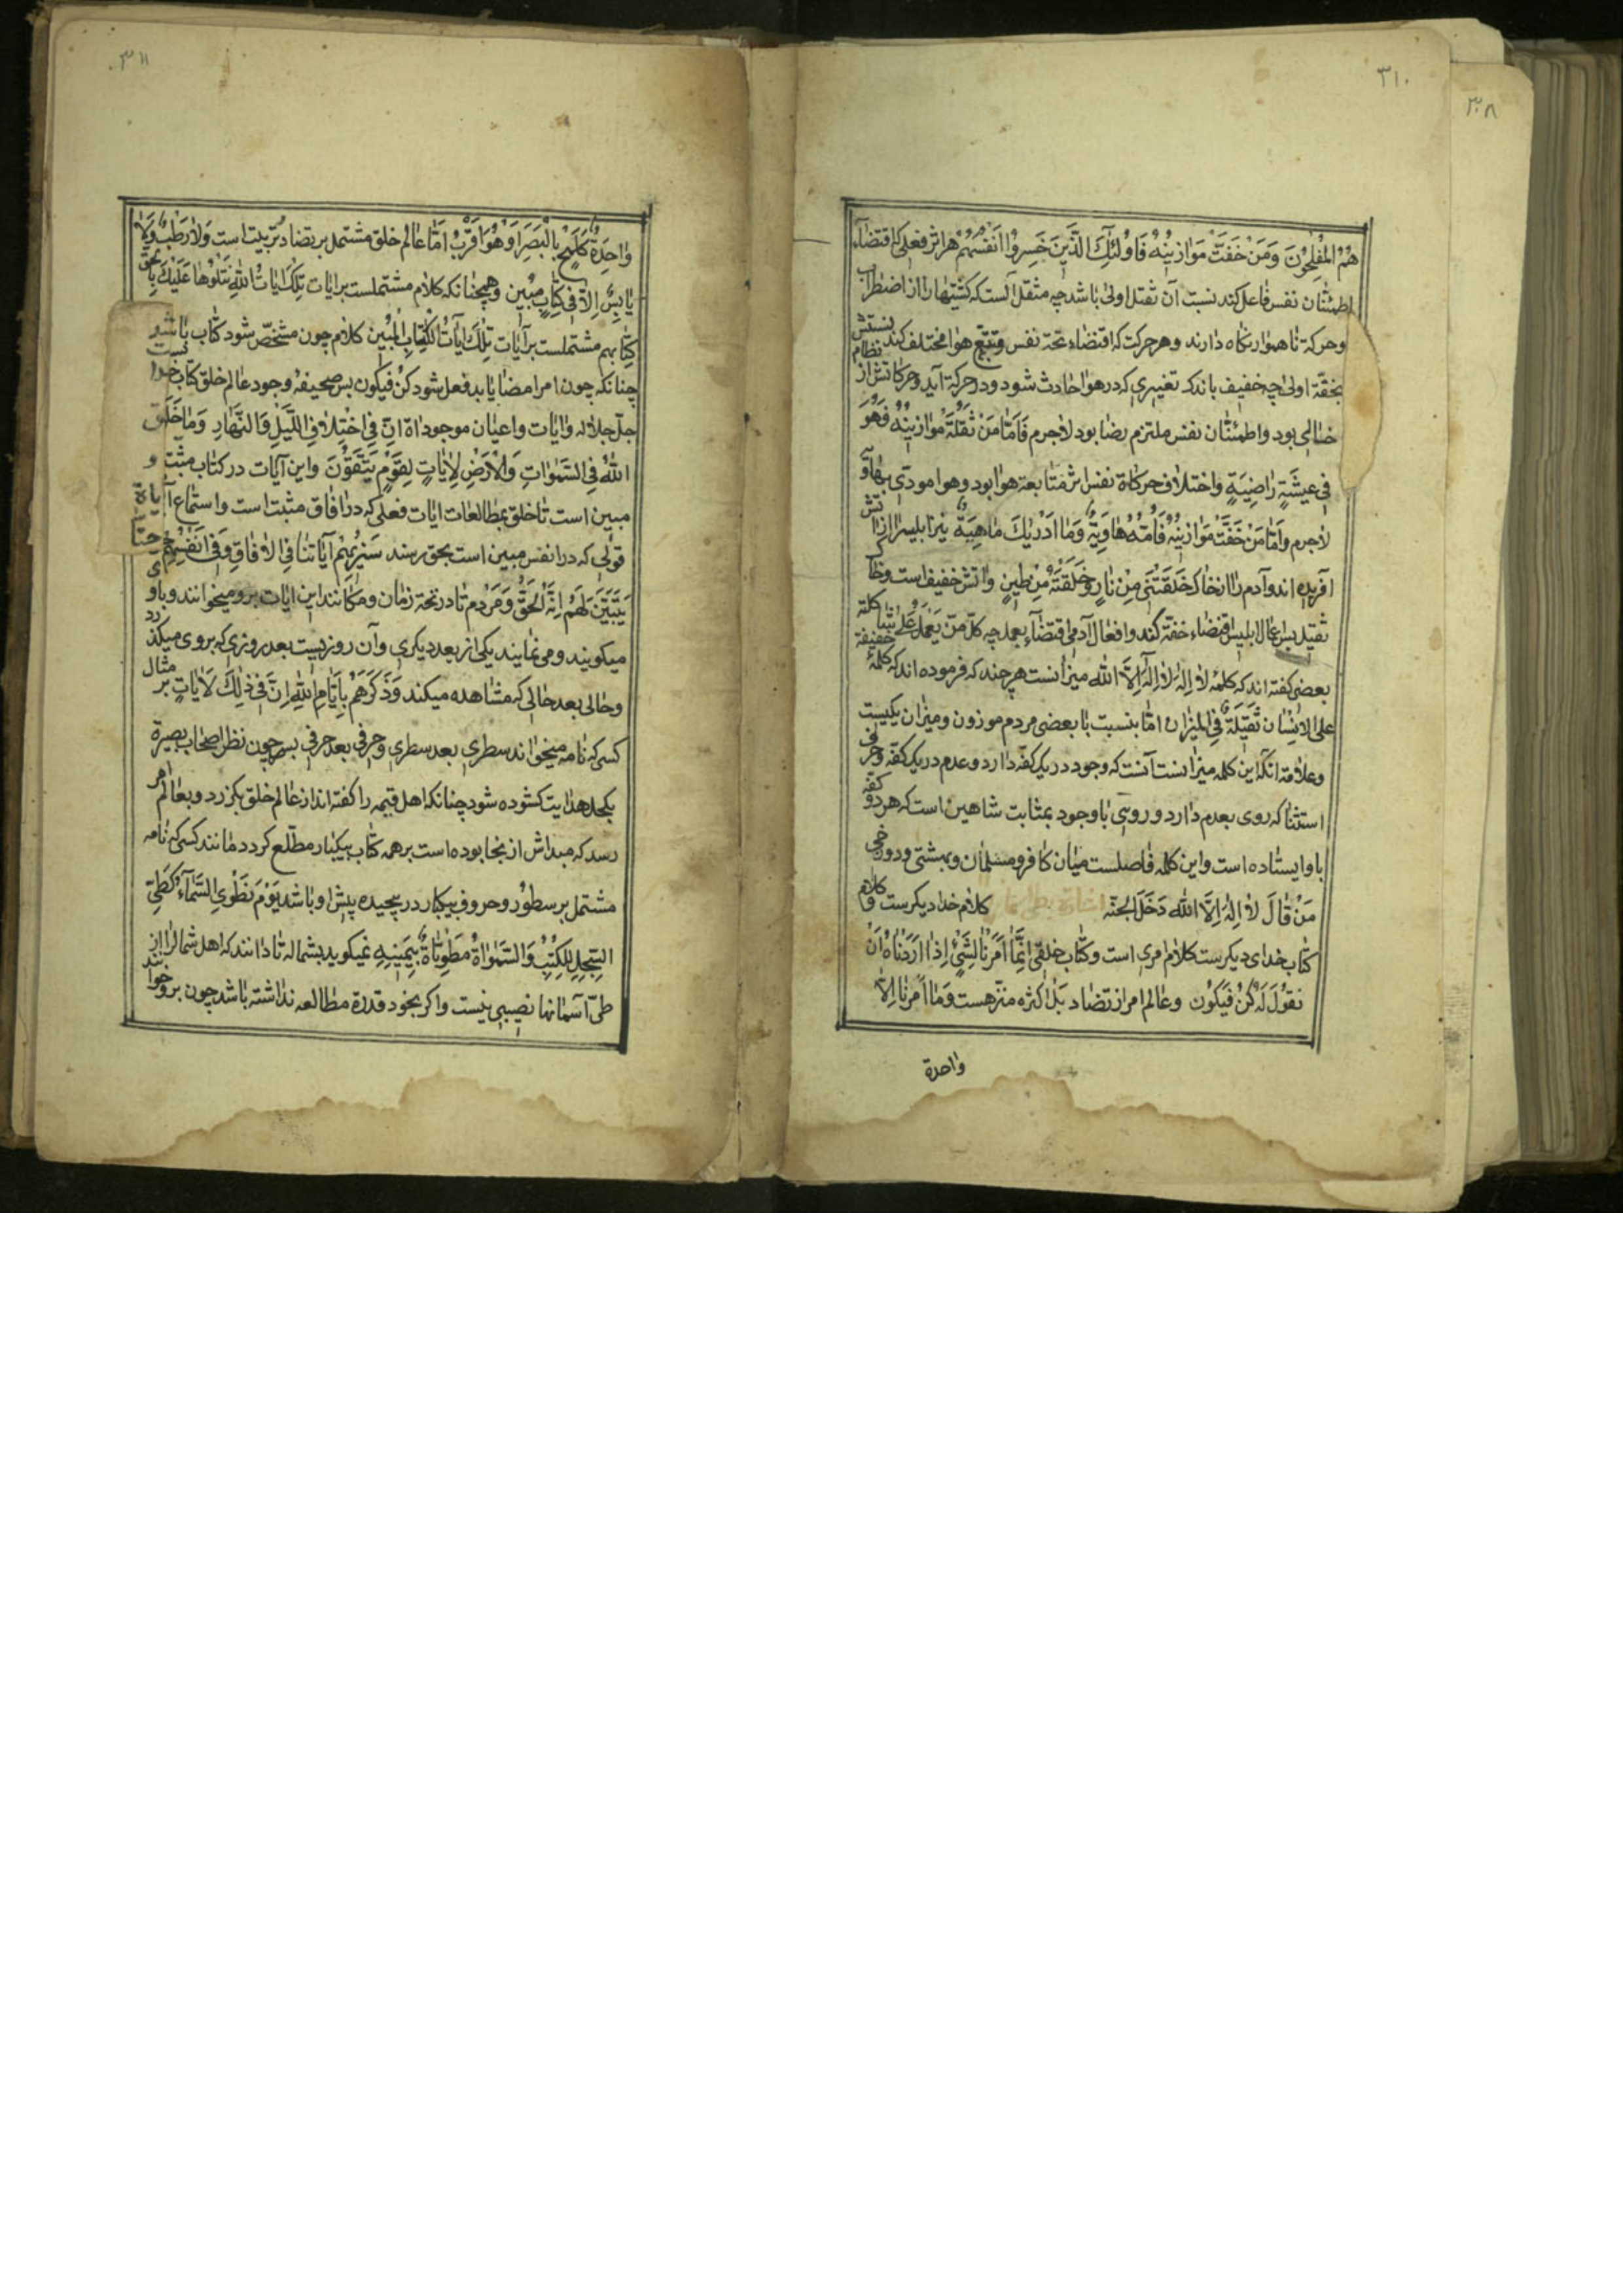 ٣١٠
٣٠٨
هُمُ الْمُفْلِحُوْنَ وَمَنْ خَفَّتْ مَوَازِيْنُهُ فَاُولٰئِكَ الَّذِيْنَ خَسِرُوْا اَنْفُسَهُمْ هر اثر فعلی که اقتضاء
اطمئنان نفس فاعل کند نسبت آن بثقل اولی باشد چه مثقل آلست که کشتیها را از اضطراب
وحرکة ناهموار نکاه دارند وهر حرکت که اقتضاء تحته نفس وتتبع هوا مختلف کند نسبتش
بخفّة اولی چه خفیف باندک تغییری که در هوا حادث شود در حرکة آید وحرکاتش از نظام
خالی بود واطمئنان نفس ملتزم رضا بود لاجرم فَاَمَّا مَنْ ثَقُلَتْ مَوَازِيْنُهُ فَهُوَ
فِي عِيْشَةٍ رَاضِيَةٍ واختلاف حرکاة نفس اثر متابعة هوا بود وهوا مودّی بهاویه
لاجرم وَاَمَّا مَنْ خَفَّتْ مَوَازِيْنُهُ فَاُمُّهُ هَاوِيَةٌ وَمَا اَدْرٰيكَ مَاهِيَهْ نیز ابلیس را از آتش
آفریده اند وآدم را از خاک خَلَقْتَنِي مِنْ نَارٍ وَخَلَقْتَهُ مِنْ طِيْنٍ وآتش خفیف است وخاک
ثقیل بس اعمال ابلیس اقتضاء خفّة کند وافعال آدمی اقتضاء بعمل چه کلّ مَنْ يَعْمَلُ عَلٰى شَاكِلَتِهِ
بعضی کفته اند که کلمهٔ لا اِلهَ اِلَّا الله میزانست هرچند که فرموده اند که کلمهٔ خفیفة
علی الانسان ثَقِيْلَةٌ فی المیزان امّا بنسبت با بعضی مردم موزون ومیزان یکیست
وعلاقة انکه این کلمه میزانست آنست که وجود در یک کفّه دارد وعدم در یک کفّه وحرف
استثنا که روی بعدم دارد وروئی با وجود بمثابت شاهین است که هر دو کفّه
باو ایستاده است واین کلمه فاصلست میان کافر ومسلمان وبهشتی ودوزخی
مَنْ قَالَ لا اِلٰهَ اِلَّا الله دَخَلَ الْجَنَّة کلام خدا دیکرست
کتاب خدای دیکرست کلام امری است وکتاب خلقی اِنَّمَا اَمْرُنَا لِشَيْءٍ اِذَا اَرَدْنَاهُ اَنْ
نَقُوْلَ لَهُ كُنْ فَيَكُوْن وعالم امر از تضاد بل از کثره منزّهست وَمَا اَمْرُنَا اِلَّا
واحدة
٣١١
وَاحِدَةٌ كَلَمْحٍ بِالْبَصَرِ اَوْ هُوَ اَقْرَبُ امّا عالم خلق مشتمل بر تضاد وترتیب است وَلَا رَطْبٍ وَلَا
يَابِسٍ اِلَّا فِي كِتَابٍ مُبِيْنٍ وهمچنانکه کلام مشتملست بر ایات تِلْكَ ايَاتُ اللهِ نَتْلُوْهَا عَلَيْكَ بِالْحَقِّ
کتاب هم مشتملست بر آیات تِلْكَ ايَاتُ الْكِتَابِ الْمُبِيْن کلام چون مشخّص شود کتاب باشد
چنانکه چون امر امضا یابد فعل شود كُنْ فَيَكُوْن بس صحیفهٔ وجود عالم خلق کتاب خدا
جلّ جلاله وایات واعیان موجوداة اِنَّ فِي اخْتِلَافِ اللَّيْلِ وَالنَّهَارِ وَمَا خَلَقَ
اللهُ فِي السَّمٰوَاتِ وَالْاَرْضِ لَاٰيَاتٍ لِقَوْمٍ يَتَّقُوْنَ واین آیات در کتاب مثبت و
مبین است تا خلق بمطالعات ایات فعلی که در افاق مثبت است واستماع آیات
قولی که در انفس مبین است بحق رسند سَنُرِيْهِمْ آيَاتِنَا فِي الْاٰفَاقِ وَفِي اَنْفُسِهِمْ حَتّٰى
يَتَبَيَّنَ لَهُمْ اَنَّهُ الْحَقُّ ومردم تا در تحت زمان ومکانند این ایات برو میخوانند وباو
میکویند ومی نمایند یکی از بعد دیکری وآن روزیست بعد روزی که بروی میکذرد
وحالی بعد حالی که مشاهده میکند وَذَكِّرْهُمْ بِاَيَّامِ اللهِ اِنَّ فِي ذٰلِكَ لَاٰيَاتٍ بر مثال
کسی که نامه میخواند سطری بعد سطری وحرفی بعد حرفی بس چون نظر اصحاب بصیرة
بکحل هدایت کشوده شود چنانکه اهل قیمه را کفته اند از عالم خلق بکزرد وبعالم امر
رسد که مبداش از نجا بوده است بر همه کتاب بیکبار مطّلع کردد مانند کسی که نامه
مشتمل بر سطور وحروف بیکبار در پیچیده پیش او باشد يَوْمَ نَطْوِي السَّمَاءَ كَطَيِّ
السِّجِلِّ لِلْكُتُبِ وَالسَّمٰوَاةُ مَطْوِيَّاةٌ بِيَمِيْنِهِ نمیکوید بشماله تا دانند که اهل شمال را از
طیّ آسمانها نصیبی نیست واکر بخود قدرة مطالعه نداشته باشد چون برو خوانند